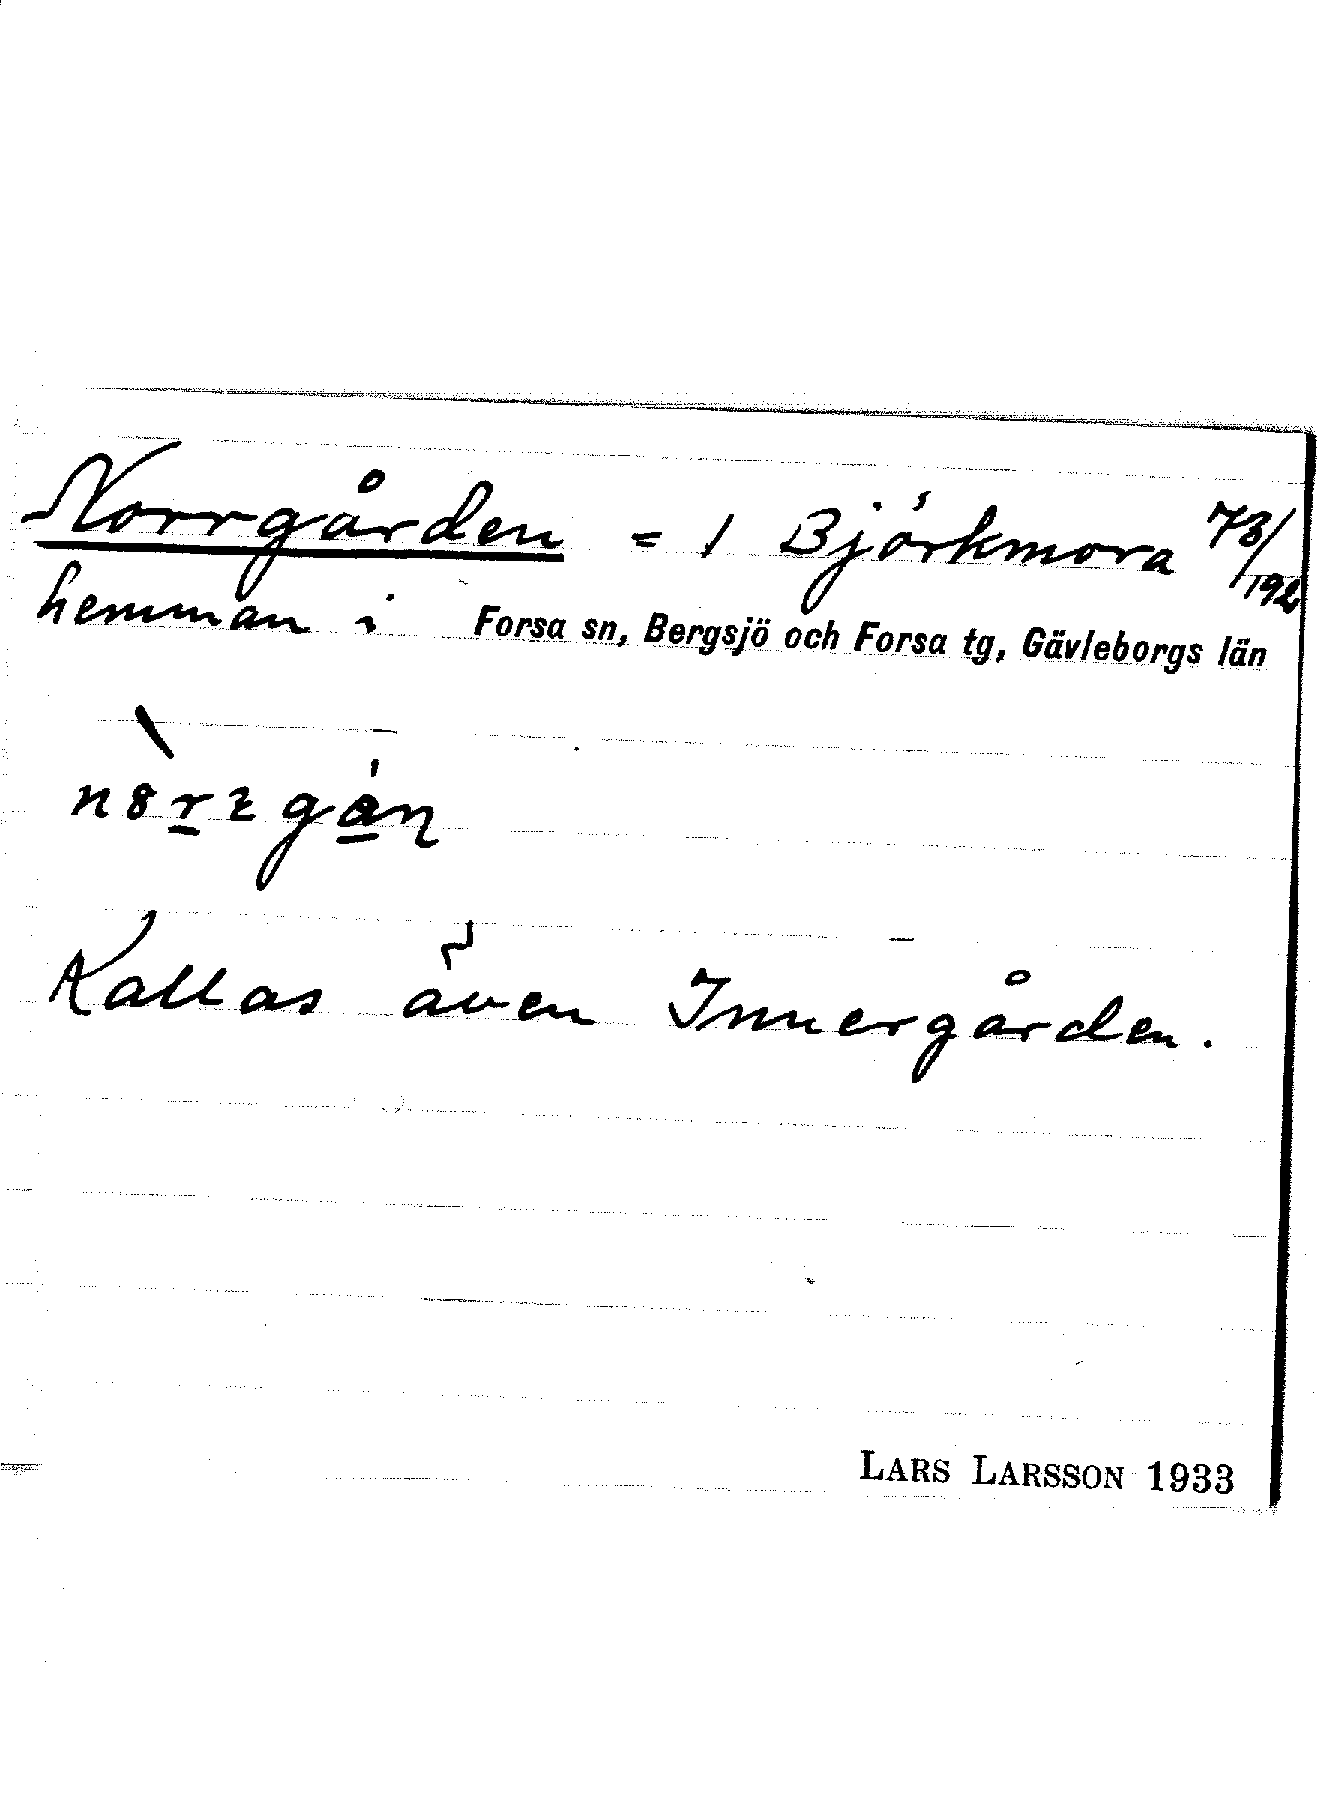 Norrgården = 1 Björkmora 73/192
hemman i Forsa sn, Bergsjö och Forsa tg, Gävleborgs län
Kallas även Innergården.
LARS LARSSON 1933